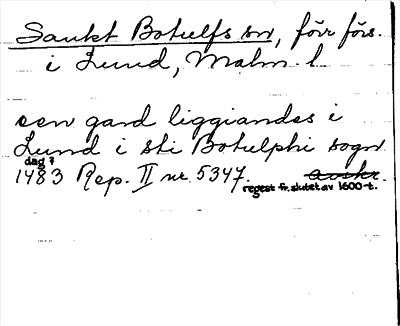 Sankt Botulfs sn, förr förs.
i Lund, Malm. l.
een gard liggiandes i
Lund i sti Botulphi sogn
dag ?
1483 Rep. II nr 5347. avskr.
regest fr. slutet av 1600-t.